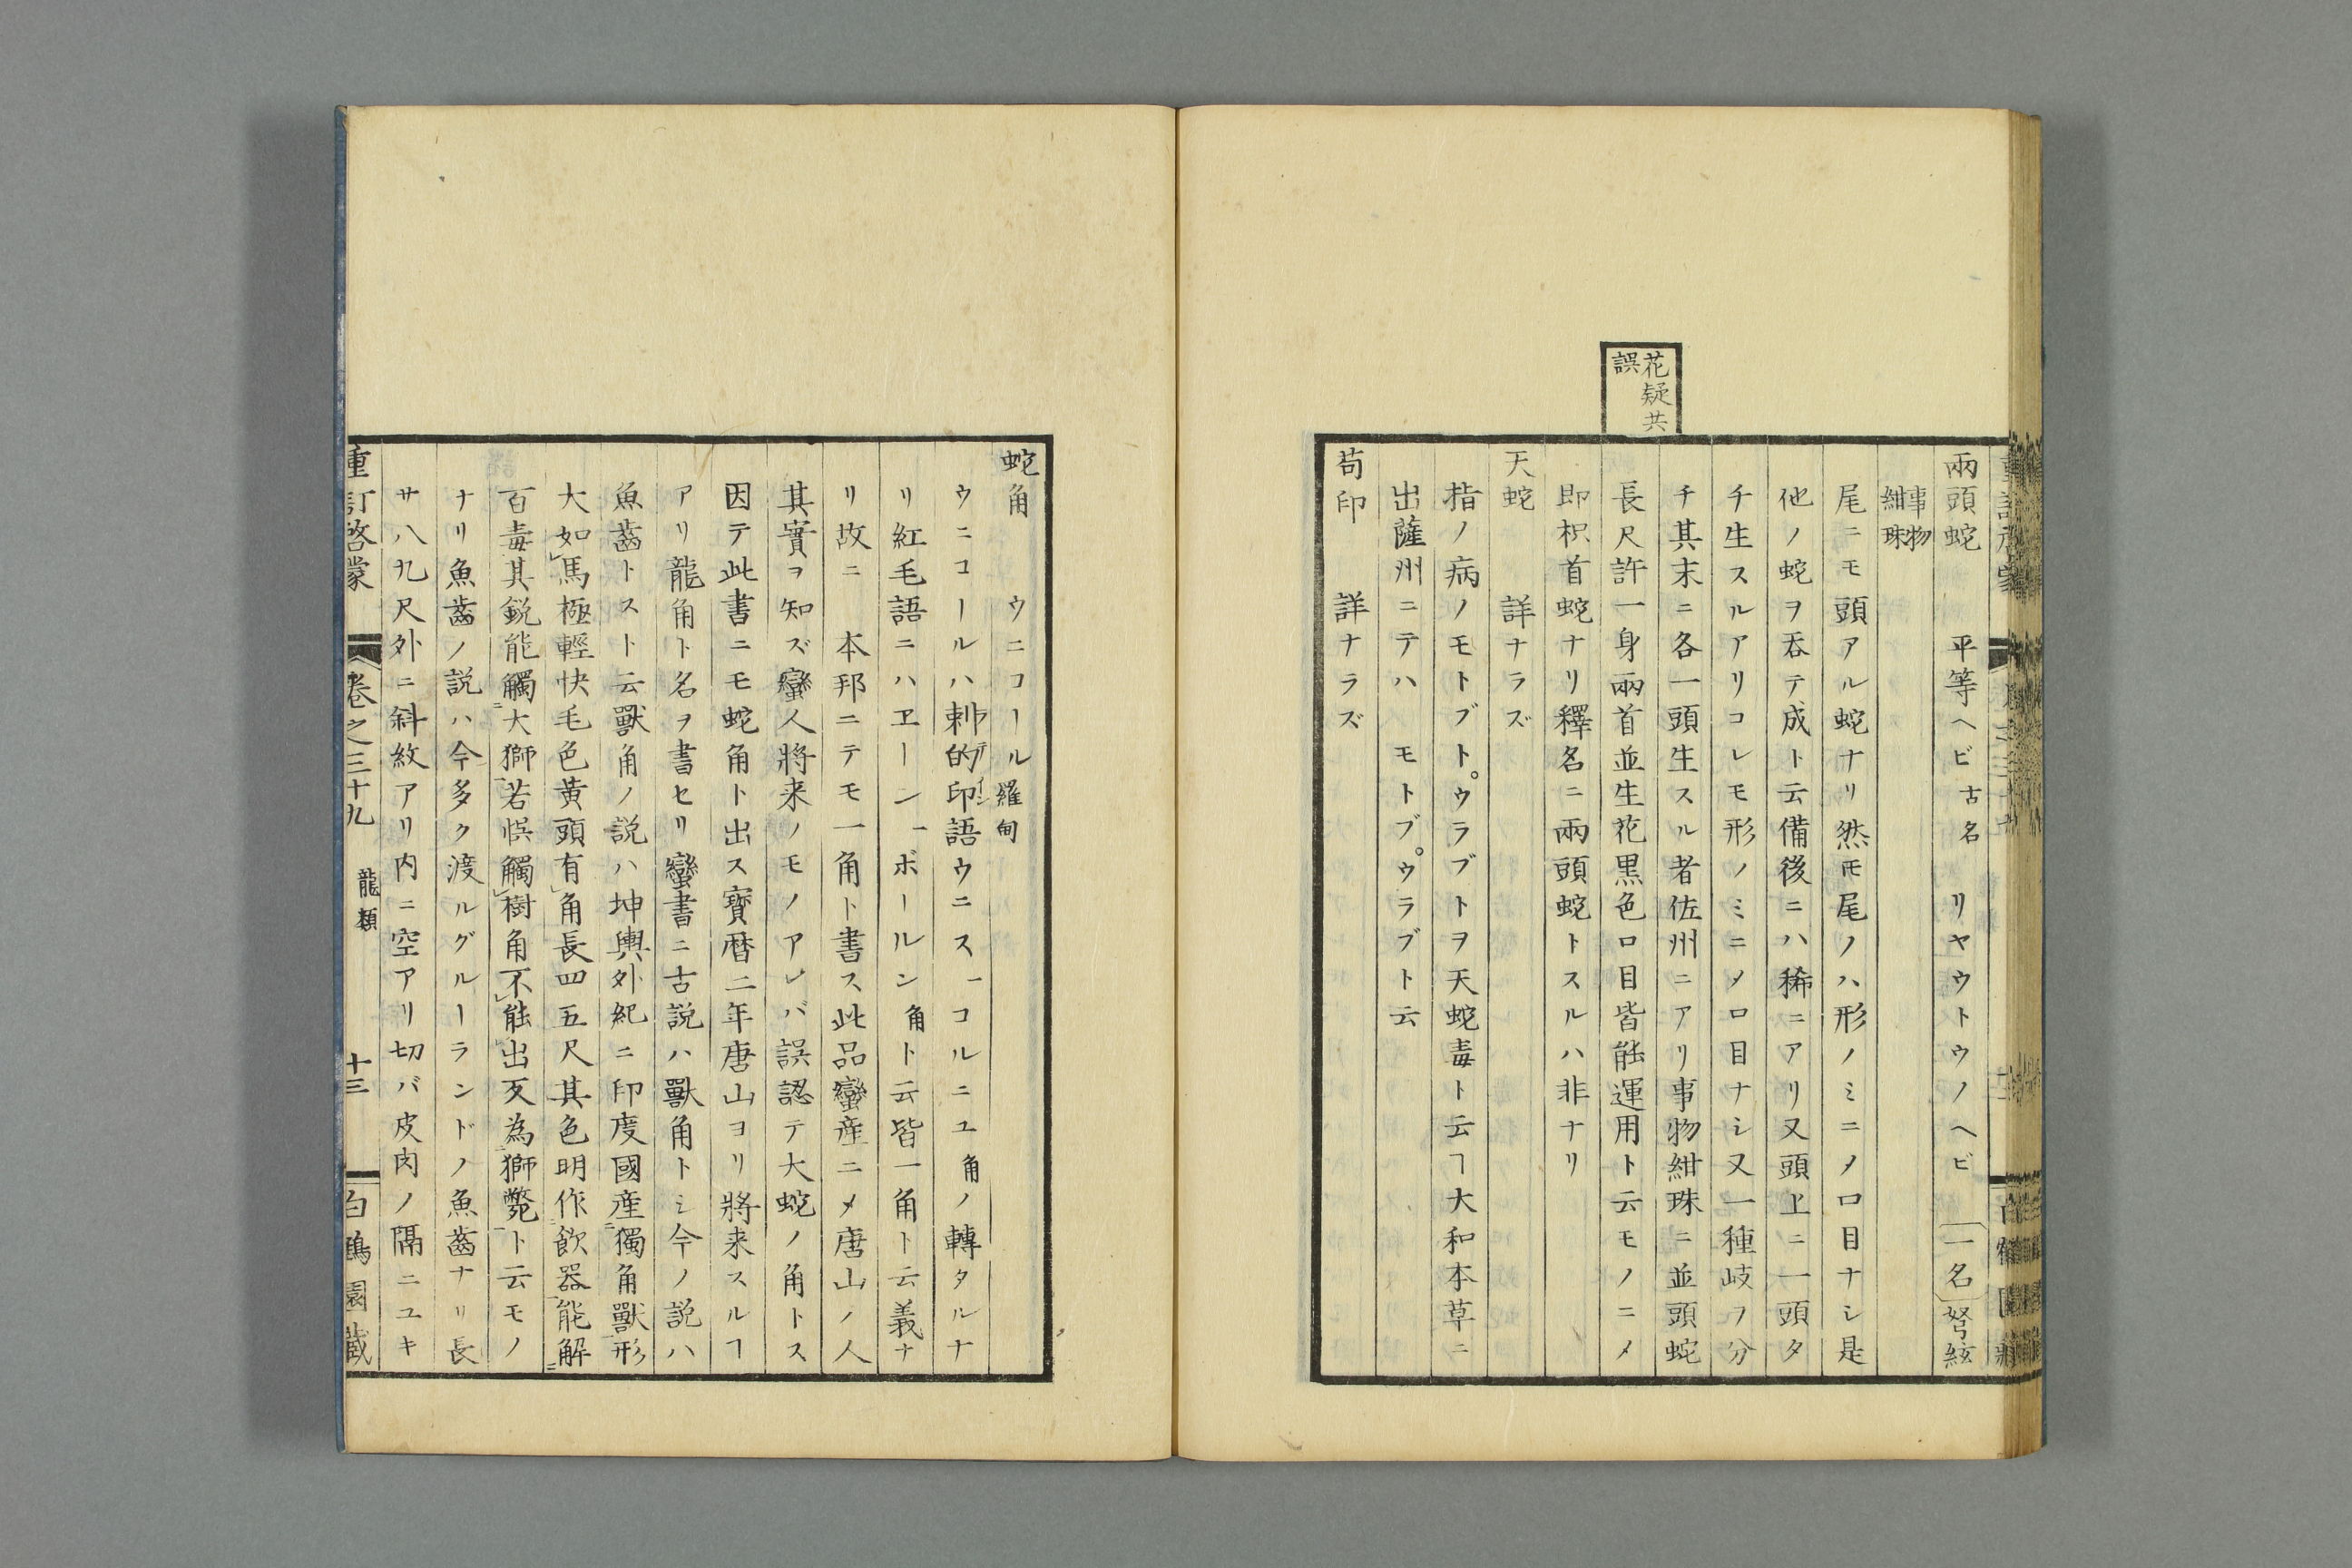 花疑共
誤
兩頭蛇　平等ヘビ古名　リヤウトウノヘビ　〔一名〕弩絃
事物
紺珠
尾ニモ頭アル蛇ナリ然𪜈尾ノハ形ノミニ〆口目ナシ是
他ノ蛇ヲ呑テ成ト云備後ニハ稀ニアリ又頭上ニ一頭タ
チ生スルアリコレモ形ノミニ〆口目ナシ又一種岐ヲ分
チ其末ニ各一頭生スル者佐州ニアリ事物紺珠ニ並頭蛇
長尺許一身兩首並生花黒色口目皆能運用ト云モノニ〆
即枳首蛇ナリ釋名ニ兩頭蛇トスルハ非ナリ
天蛇　詳ナラズ
指ノ病ノモトブト。ウラブトヲ天蛇毒ト云ヿ大和本草ニ
出薩州ニテハ　モトブ。ウラブト云
苟印　詳ナラズ
蛇角　ウニコール羅甸
ウニコールハ剌的印語ウニスーコルニユ角ノ轉タルナ
ラテイン
リ紅毛語ニハヱーンーボールン角ト云皆一角ト云義ナ
リ故ニ　本邦ニテモ一角ト書ス此品蠻産ニ〆唐山ノ人
其實ヲ知ズ蠻人將来ノモノアレバ誤認テ大蛇ノ角トス
因テ此書ニモ蛇角ト出ス寶暦二年唐山ヨリ將来スルヿ
アリ龍角ト名ヲ書セリ蠻書ニ古説ハ獸角トシ今ノ説ハ
魚齒トスト云獸角ノ説ハ坤輿外紀ニ印度國産獨角獸形
大如馬極輕快毛色黄頭有角長四五尺其色明作飲器能解
百毒其鋭能觸大獅若悮觸樹角不能出反為獅斃ト云モノ
ナリ魚齒ノ説ハ今多ク渡ルグルーランドノ魚齒ナリ長
サ八九尺外ニ斜紋アリ内ニ空アリ切バ皮肉ノ隔ニユキ
重訂啓蒙　卷之三十九　龍類　十三　白鶴園藏